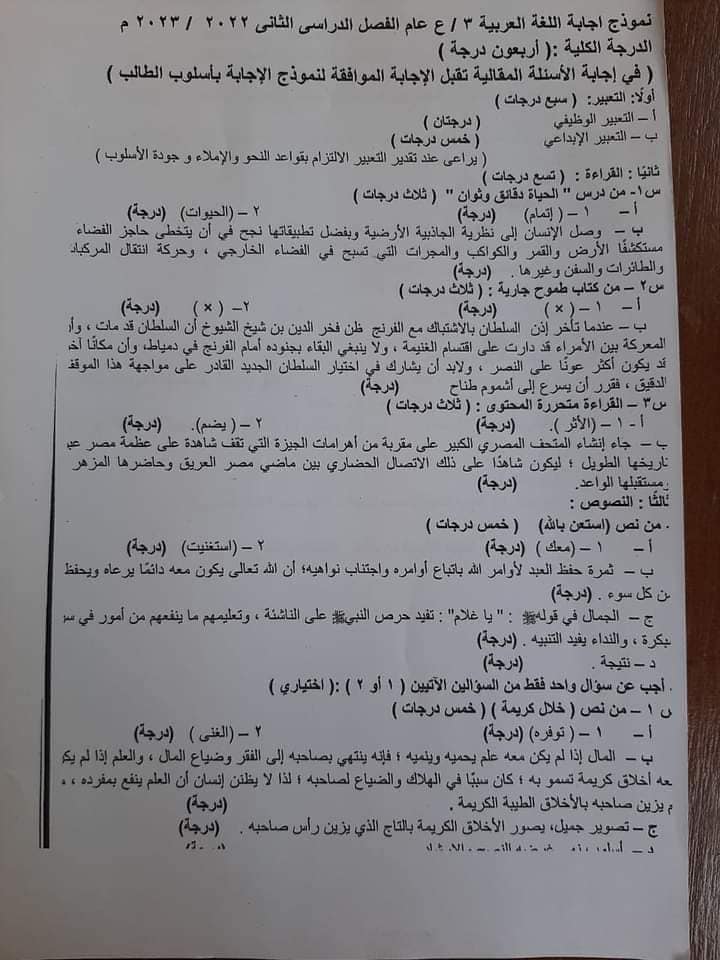 نموذج اجابة اللغة العربية ٣ / ع عام الفصل الدراسى الثانى ٢٠٢٢ / ٢٠٢٣ م
الدرجة الكلية :( أربعون درجة )
( في إجابة الأسئلة المقالية تقبل الإجابة الموافقة لنموذج الإجابة بأسلوب الطالب )
أولًا: التعبير: ( سبع درجات )
أ – التعبير الوظيفي ( درجتان )
ب – التعبير الإبداعي ( خمس درجات )
( يراعى عند تقدير التعبير الالتزام بقواعد النحو والإملاء و جودة الأسلوب )
ثانيًا : القراءة : ( تسع درجات )
س١- من درس " الحياة دقائق وثوان " ( ثلاث درجات )
أ – ١ – (إتمام) (درجة) ٢ – (الحيوات) (درجة)
ب – وصل الإنسان إلى نظرية الجاذبية الأرضية وبفضل تطبيقاتها نجح في أن يتخطى حاجز الفضاء
مستكشفًا الأرض والقمر والكواكب والمجرات التي تسبح في الفضاء الخارجي ، وحركة انتقال
والطائرات والسفن وغيرها . (درجة)
س٢ – من كتاب طموح جارية : ( ثلاث درجات )
أ – ١ – ( × ) (درجة) ٢– ( × ) (درجة)
ب – عندما تأخر إذن السلطان بالاشتباك مع الفرنج ظن فخر الدين بن شيخ الشيوخ أن السلطان قد مات ،
المعركة بين الأمراء قد دارت على اقتسام الغنيمة ، ولا ينبغي البقاء بجنوده أمام الفرنج في دمياط، وأن مكانًا
قد يكون أكثر عونًا على النصر ، ولابد أن يشارك في اختيار السلطان الجديد القادر على مواجهة هذا
الدقيق ، فقرر أن يسرع إلى أشموم طناح (درجة)
س٣ – القراءة متحررة المحتوى : ( ثلاث درجات )
أ - ١ – (الأثر ). (درجة) ٢ – (يضم). (درجة)
ب – جاء إنشاء المتحف المصري الكبير على مقربة من أهرامات الجيزة التي تقف شاهدة على عظمة مصر
تاريخها الطويل ؛ ليكون شاهدًا على ذلك الاتصال الحضاري بين ماضي مصر العريق وحاضرها المزهر
ومستقبلها الواعد. (درجة)
ثالثًا : النصوص :
من نص (استعن بالله) ( خمس درجات )
أ – ١ – (معك ) (درجة) ٢ – (استغنيت) (درجة)
ب – ثمرة حفظ العبد لأوامر الله باتباع أوامره واجتناب نواهيه؛ أن الله تعالى يكون معه دائمًا يرعاه ويحفظ
من كل سوء . (درجة)
ج – الجمال في قولهﷺ : " يا غلام" : تفيد حرص النبيﷺ على الناشئة ، وتعليمهم ما ينفعهم من أمور في
مبكرة ، والنداء يفيد التنبيه . (درجة)
د – نتيجة . (درجة)
. أجب عن سؤال واحد فقط من السؤالين الآتيين ( ١ أو ٢ ) :( اختياري )
س ١ – من نص ( خلال كريمة ) ( خمس درجات )
أ – ١ – ( توفره) (درجة) ٢ – (الغنى ) (درجة)
ب – المال إذا لم يكن معه علم يحميه وينميه ؛ فإنه ينتهي بصاحبه إلى الفقر وضياع المال ، والعلم إذا لم
معه أخلاق كريمة تسمو به ؛ كان سببًا في الهلاك والضياع لصاحبه ؛ لذا لا يظنن إنسان أن العلم ينفع بمفرده ،
لم يزين صاحبه بالأخلاق الطيبة الكريمة . (درجة)
ج – تصوير جميل، يصور الأخلاق الكريمة بالتاج الذي يزين رأس صاحبه . (درجة)